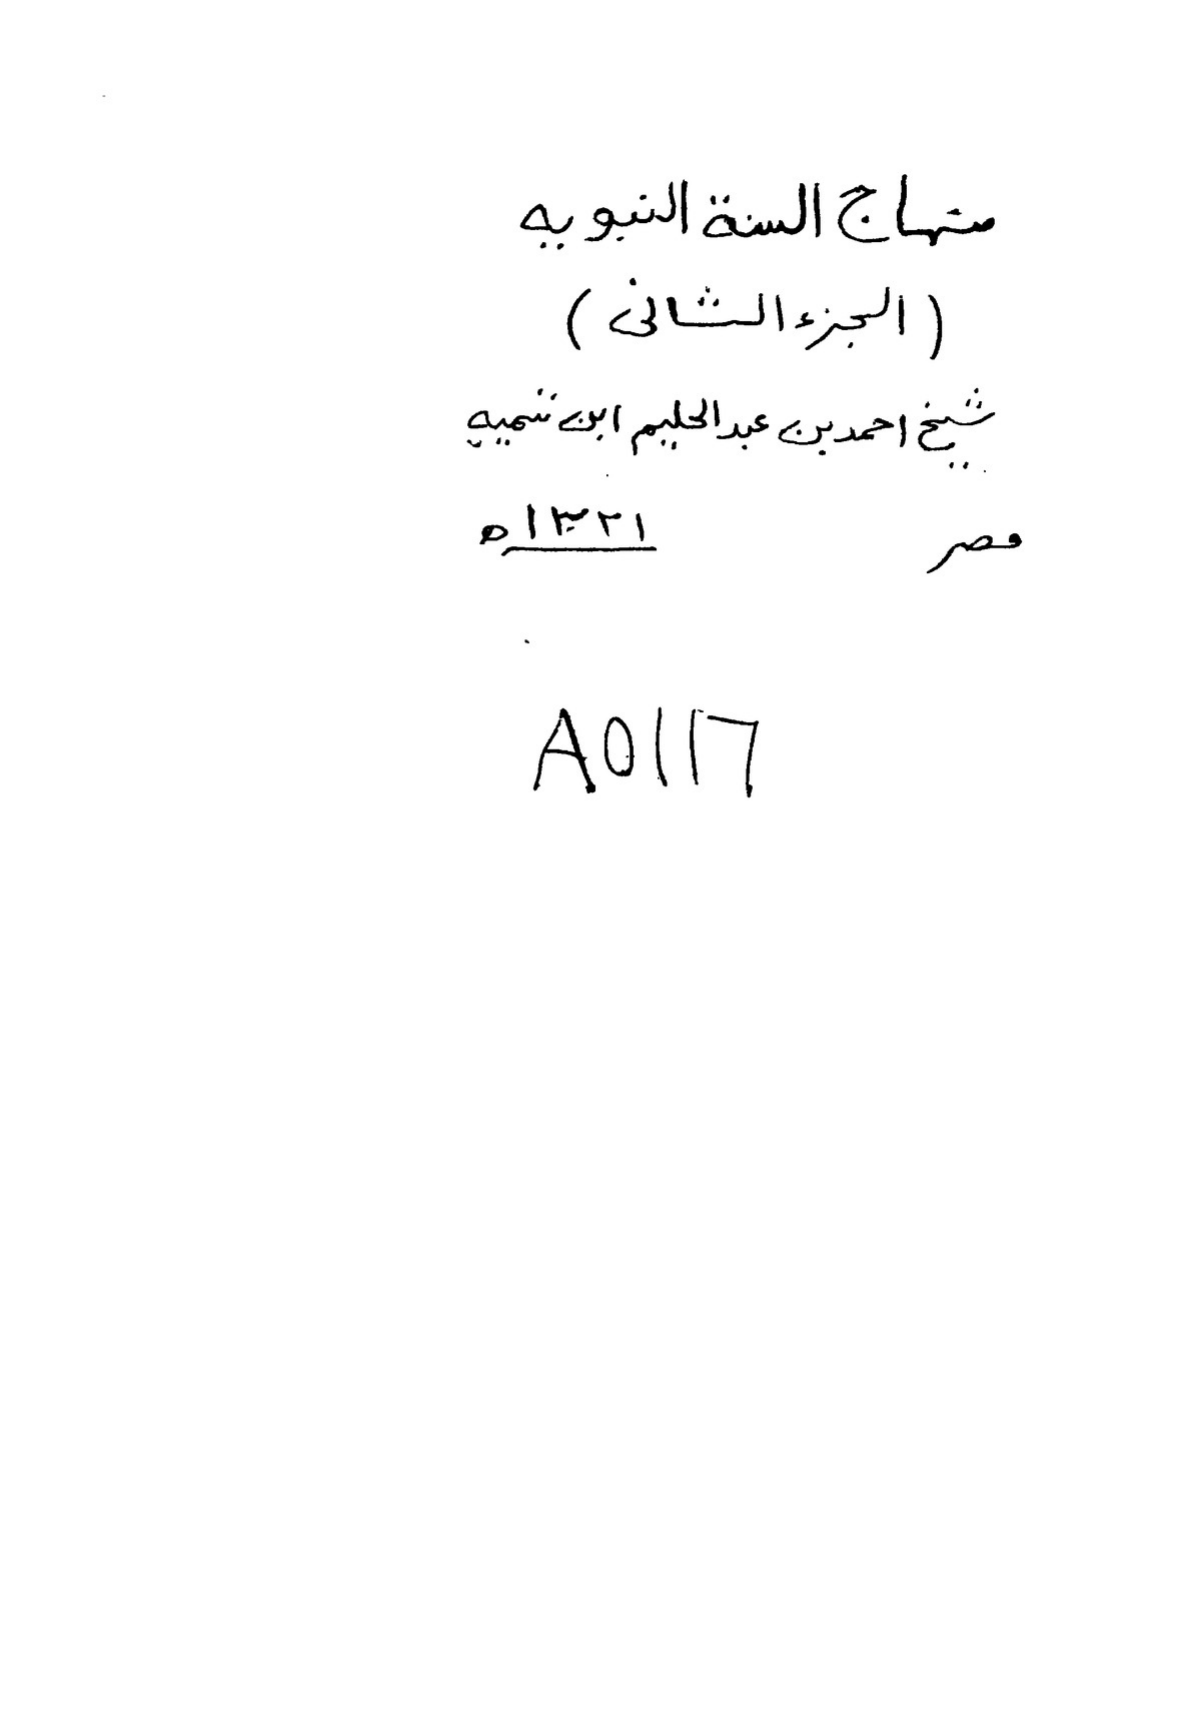 منهاج السنة النبويه
( الجزء الثانى )
شيخ احمد بن عبدالحليم ابن تيميه
مصر ١٣٢١ه
A0117